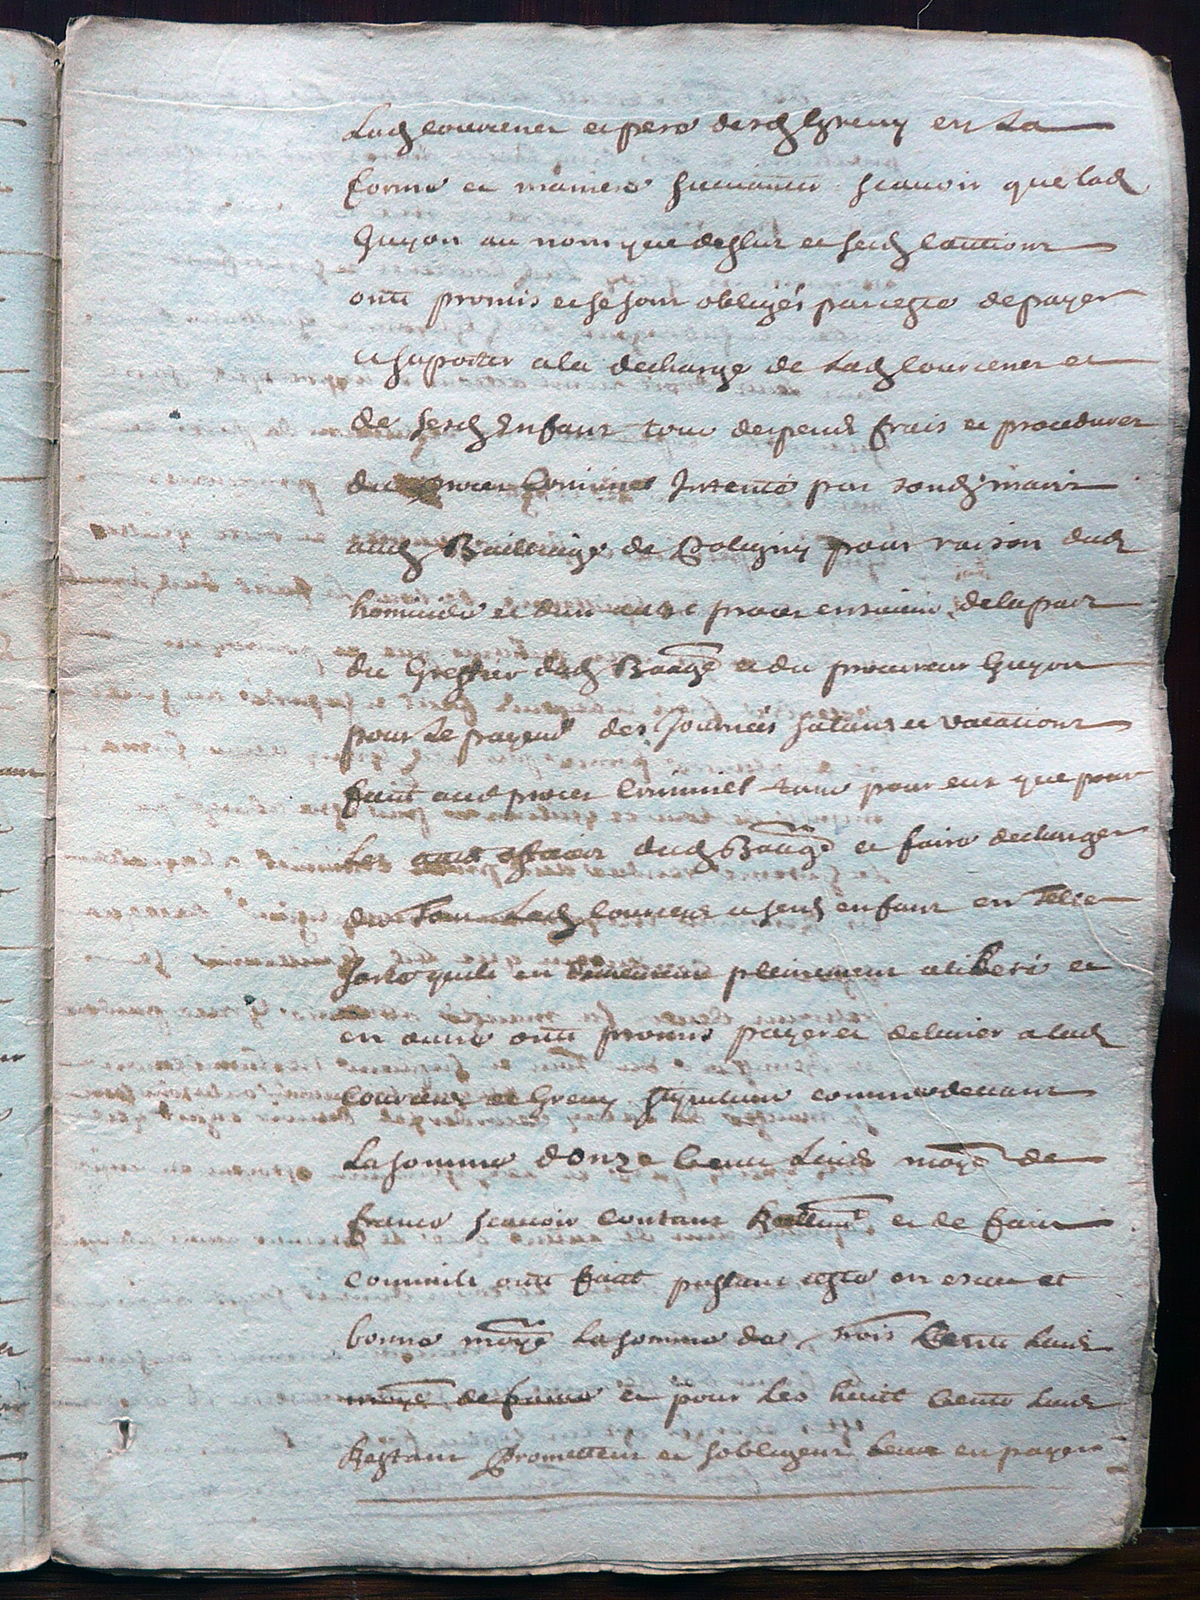 Lad Couruener et pere desd Greuy en La
forme et maniere suiuante scauoir que lad
Guyon au nom que dessus et sesd Cautions
ont promis et se sont obligés par ceste de payer
et suporter a la decharge de Lad Couruener et
de sesd Enfans tous despend frais et procedures
du proces Criminel Intenté par sond mary
aud Bailliage de Poligny pour raison dud
homicide et dun autre proces ensuiui de la part
du Greffier dud Baage et du procureur Guyon
pour Le payemt des Journées salaires et vacations
fait aud proces Criminel tant pour eux que pour
Les aut officiers dud Baage et faire decharger
du Tout Lad Couruener et sesd enfans en telle
sorte quils en demeurent pleinement aliberé et
en outre ont promis payer et deliurer a lad
Couruener et Greuy stipulant comme deuant
La somme donze Cent Liures monye de
france scauoir contant Reellemt et de fait
Comme ils ont fait passant ceste en escus et
bonne monye La somme de trois Cents Liures
monye de france et pour Les huict Cents Liures
Restant promettent et sobligent Leur en payer